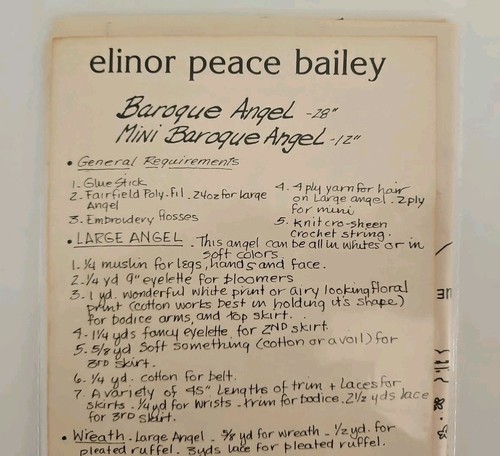 elinor peace bailey
Baroque Angel - 28"
Mini Baroque Angel - 12"
• General Requirements
1. Glue Stick
2. Fairfield Poly-fil. 24oz for large
Angel
3. Embrodery flosses
4. 4 ply yarn for hair
on Large angel. 2 ply
for mini
5. Knit cro-sheen
crochet string.
• LARGE ANGEL. This angel can be all in whites or in
soft colors
1. 1/4 muslin for legs, hands and face.
2. 1/4 yd 9" eyelette for bloomers
3. 1 yd. wonderful white print or airy looking floral
print (cotton works best in holding it's shape)
for bodice arms, and top skirt.
4. 1 1/4 yds fancy eyelette, for 2ND skirt.
5. 5/8 yd Soft something (cotton or a voil) for
3RD skirt.
6. 1/4 yd. cotton for belt.
7. A variety of 45" lengths of trim + Laces for
skirts. 1/4 yd for wrists - trim for bodice. 2 1/2 yds lace
for 3RD skirt.
• Wreath - Large Angel - 5/8 yd for wreath - 1/2 yd. for
pleated ruffel. 3yds lace for pleated ruffel.